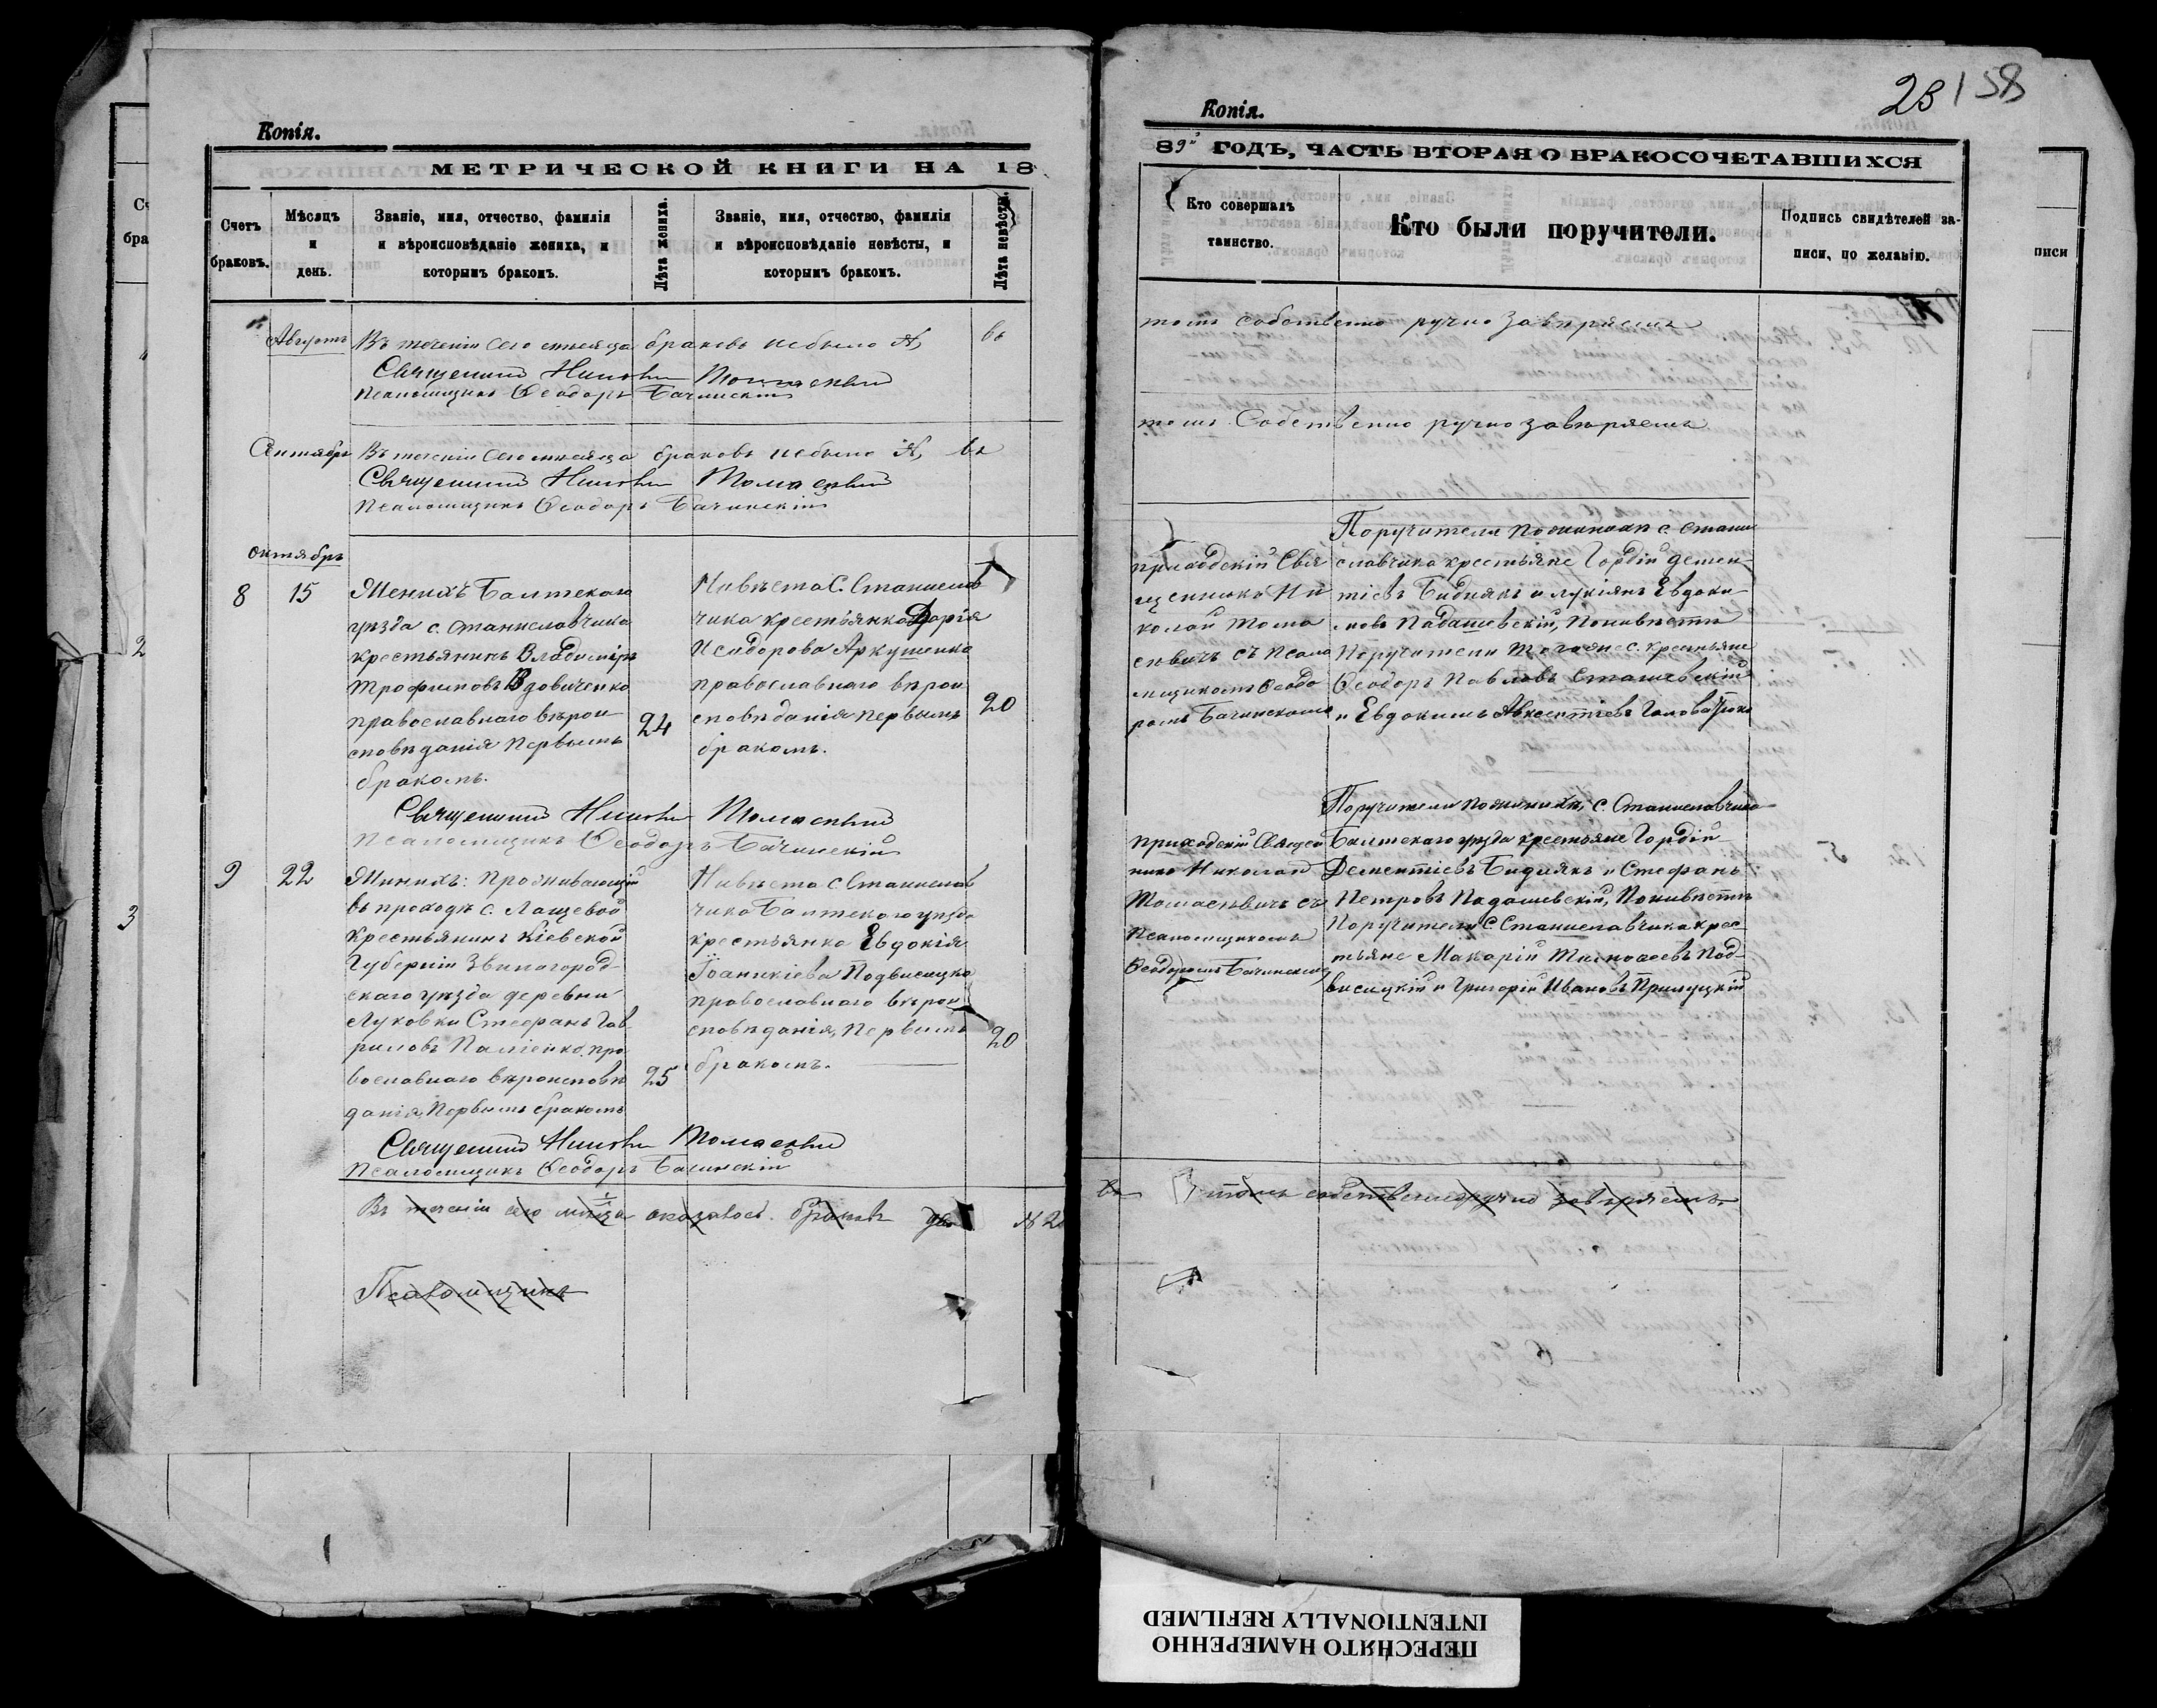 Копія.
МЕТРИЧЕСКОЙ КНИГИ НА 18
Счетъ браковъ.
Мѣсяцъ и день.
Званіе, имя, отчество, фамилія и вѣроисповѣданіе жениха, и которымъ бракомъ.
Лѣта жениха.
Званіе, имя, отчество, фамилія и вѣроисповѣданіе невѣсты, и которымъ бракомъ.
Лѣта невѣсты.
Августъ
Въ теченіи сего месяца браковъ небыло А, въ
Священникъ Николай Томасевичъ
Псаломщикъ Ѳеодоръ Бачинскій
Сентябрь
Въ теченіи сего месяца браковъ небыло А, въ
Священникъ Николай Томасевичъ
Псаломщикъ Ѳеодоръ Бачинскій
Октябрь
8
15
Женихъ Балтскаго
уѣзда с. Станиславчика
крестьянинъ Владимиръ
Трофимовъ Вдовиченко
православнаго вѣрои-
сповѣданія первымъ
бракомъ.
24
Нивѣста С. Станислав
чика крестьянка Дарія
Исидорова Аркушенко
православнаго вѣрои
сповѣданія первымъ
бракомъ.
20
Священникъ Николай Томасевичъ
Псаломщикъ Ѳеодоръ Бачинскій
9
22
Жинихъ: Проживающій
въ приходѣ с. Лащевой
Крестьянинъ Кіевской
Губерніи Звиногород-
скаго уѣзда деревни
Луковки Стефанъ Гав
риловъ Паліенко, пра
вославнаго вѣроисповѣ
данія, Первымъ бракомъ
25
Нивѣста с Станислав
чика Балтскаго уѣзда
крестьянка Евдокія
Іоаникіева Подвисицка
православнаго вѣрои
сповѣданія, Первымъ
бракомъ.
20
Священникъ Николай Томасевичъ
Псаломщикъ Ѳеодоръ Бачинскій
Въ теченіи сего мѣсяца оказалось браковъ два № 2
Псаломщикъ
23
158
Копія.
89 ГОДЪ, ЧАСТЬ ВТОРАЯ О БРАКОСОЧЕТАВШИХСЯ
Кто совершалъ таинство.
Кто были поручители.
Подпись свидѣтелей записи, по желанію.
томъ собственно ручно завѣряемъ
томъ Собственно ручно завѣряемъ
Приходскій Свя
щенникъ Ни
колай Тома
севичъ съ Псало
мщикомъ Ѳеодо
ромъ Бачинскимъ
Поручители по женихѣ с. Стани
славчика крестьяне Гордій Демен-
тіевъ Бидиякъ и Лукіянъ Евдоки-
мовъ Падашевскій, Понивѣсти
Поручители Тогоже с. Крестьяне
Ѳеодоръ Павловъ Сташевскій
и Евдокимъ Авксентіевъ
Приходскій Священ
никъ Николай
Томасевичъ съ
Псаломщикомъ
Ѳеодоромъ Бачинскимъ
Поручители по женихѣ, с. Станиславчика
Балтскаго уѣзда крестьяне Гордій
Дементіевъ Бидиякъ и Стефанъ
Петровъ Падашевскій, Понивѣсти
Поручители С Станиславчика крес-
тьяне Макарій Тимофеевъ Под-
висицкій и Григорій Ивановъ Прилуцкій
въ
томъ собственноручно завѣряемъ.
ПЕРЕСНЯТО НАМЕРЕННО
INTENTIONALLY REFILMED